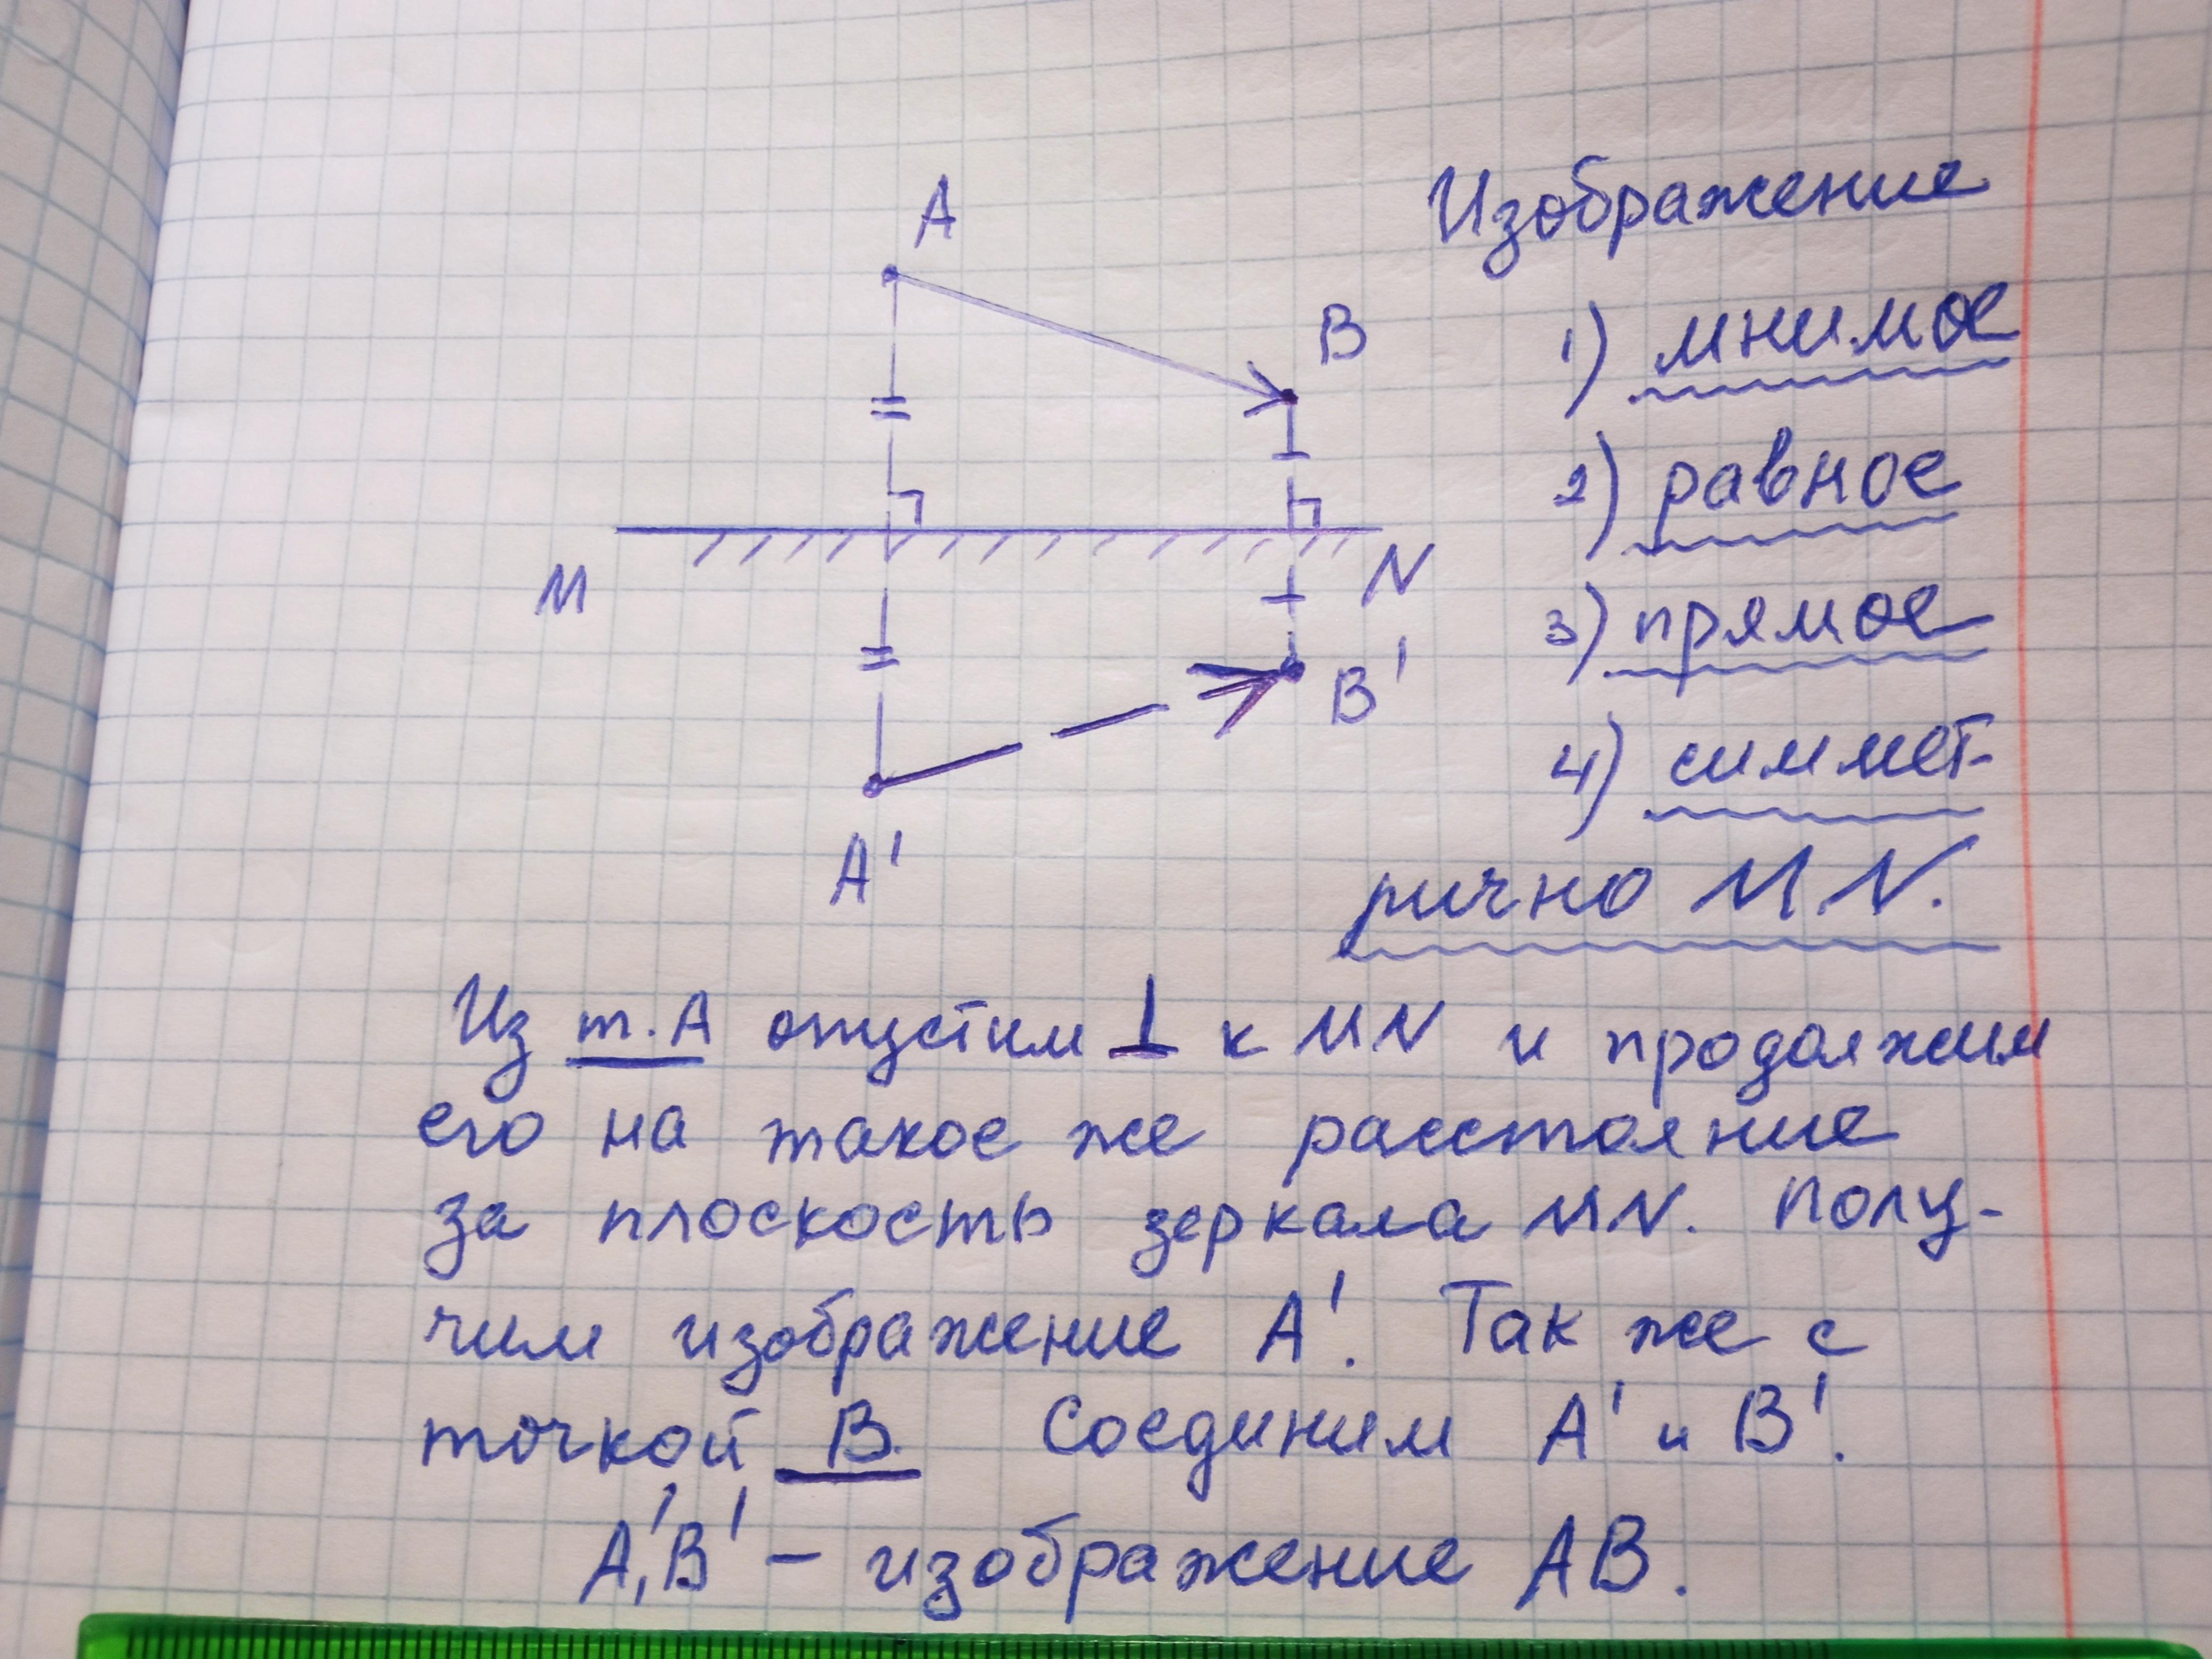 A
B
M
N
B'
A'
Изображение
1) мнимое
2) равное
3) прямое
4) симмет-
рично MN.
Из т. А опустим ⊥ к MN и продолжим
его на такое же расстояние
за плоскость зеркала MN. Полу-
чим изображение A'. Так же с
точкой B. Соединим A' и B'.
A',B' – изображение AB.